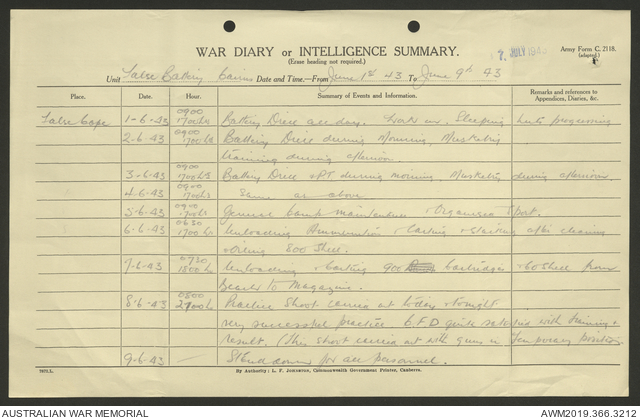 WAR DIARY or INTELLIGENCE SUMMARY.
(Erase heading not required.)
7 JULY 1943
Army Form C. 2118.
(adapted.)
Unit False Battery Cairns Date and Time.—From June 1st 43 To June 9th 43
Place. Date. Hour. Summary of Events and Information. Remarks and references to Appendices, Diaries, &c.
False Cape 1-6-43 0900 1700 hrs Battery Drill all day. Work on Sleeping huts progressing
2-6-43 0900 1700 hrs Battery Drill during Morning. Musketry
training during afternoon.
3-6-43 0900 1700 hrs Battery Drill & PT during morning. Musketry during afternoon
4-6-43 0900 1700 hrs Same as above
5-6-43 0900 1700 hrs General camp maintenance & Organised Sport.
6-6-43 0630 1700 hrs Unloading Ammunition & Carting & storing after cleaning
& oiling 800 Shell.
7-6-43 0730 1800 hrs Unloading & carting 900 Cartridges & 60 Shell from
beach to Magazine.
8-6-43 0800 2100 hrs Practice Shoot carried out today & tonight
very successful practice. C.F.D quite satisfied with training &
result. (This shoot carried out with guns in Temporary position)
9-6-43 Stand down for all personnel.
7873.L. By Authority: L. F. Johnston, Commonwealth Government Printer, Canberra.
AUSTRALIAN WAR MEMORIAL
AWM2019.366.3212